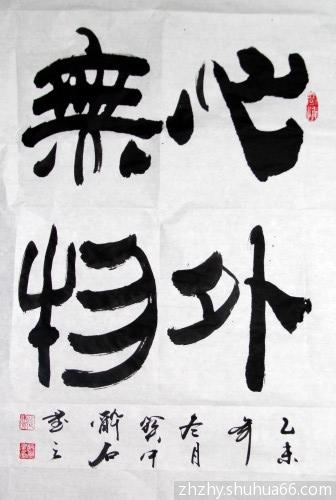 心外
無物
乙未
年
月
醉石
zhzhy.shuhua66.com